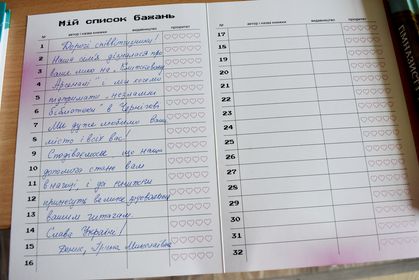 Мій список бажань
№ автор і назва книжки видавництво пріоритет
1 Дорогі співвітчизники!
2 Наша сім'я дізналася про
3 ваше лихо на "Книжковому
4 Арсеналі" і ми хочемо
5 підтримати "незламні
6 бібліотеки" в Чернігові
7 Ми дуже любимо ваше
8 місто і всіх вас!
9 Сподіваємося що наша
10 допомога стане вам
11 в нагоді, і ці книжки
12 принесуть велике задоволення
13 вашим читачам.
14 Слава Україні!
15 Денис, Ірина
16
№ автор і назва книжки видавництво пріоритет
17
18
19
20
21
22
23
24
25
26
27
28
29
30
31
32